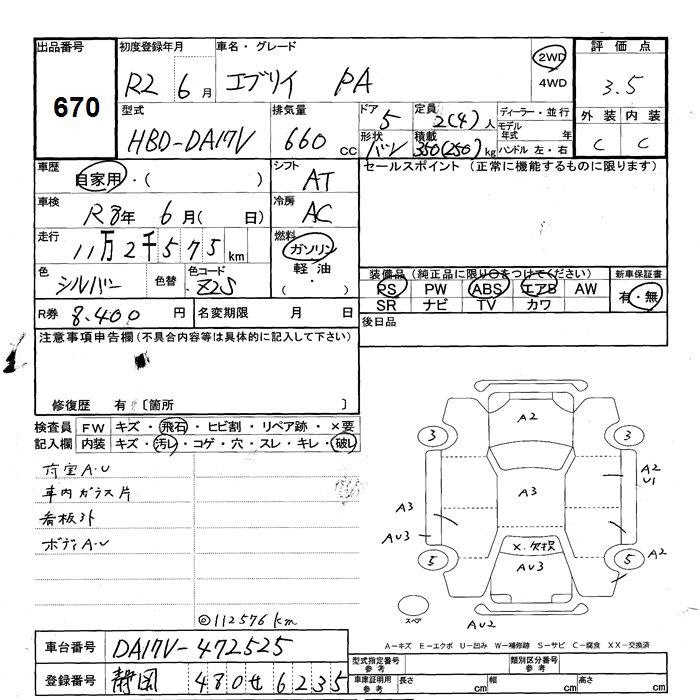 出品番号 初度登録年月 車名・グレード 評価点
670
R2 6月 エブリイ PA 2WD 4WD 3.5
型式 排気量 ドア 定員 ディーラー・並行 外装 内装
HBD-DA17V 660cc 5 2(4)人 モデル年式 年 C C
形状 バン 積載 350(250)kg ハンドル 左・右
車歴 シフト セールスポイント(正常に機能するものに限ります)
自家用・( ) AT
車検 冷房
R8年 6月( 日) AC
走行 燃料
11万2千575km ガソリン
軽油
・( )
色 シルバー 色替 色コード Z2S
装備品(純正品に限り○をつけてください) 新車保証書
PS PW ABS エアB AW 有・無
SR ナビ TV カワ
R券 8.400円 名変期限 月 日 後日品
注意事項申告欄(不具合内容等は具体的に記入して下さい)
修復歴 有〔箇所 〕
検査員 FW キズ・飛石・ヒビ割・リペア跡・×要
記入欄 内装 キズ・汚レ・コゲ・穴・スレ・キレ・破レ
荷室A.U
車内ガラス片
看板外
ボディA.U
◎112576km
A2
3 3
A2
U1
A3 A3
AU3
X.欠損
5 5 A2
AU3
スペア AU2
A-キズ E-エクボ U-凹み W-補修跡 S-サビ C-腐食 XX-交換済
車台番号 DA17V-472525
登録番号 静岡 480せ6235
型式指定番号 参考 類別区分番号 参考
車庫証明用 参考 長さ cm 幅 cm 高さ cm